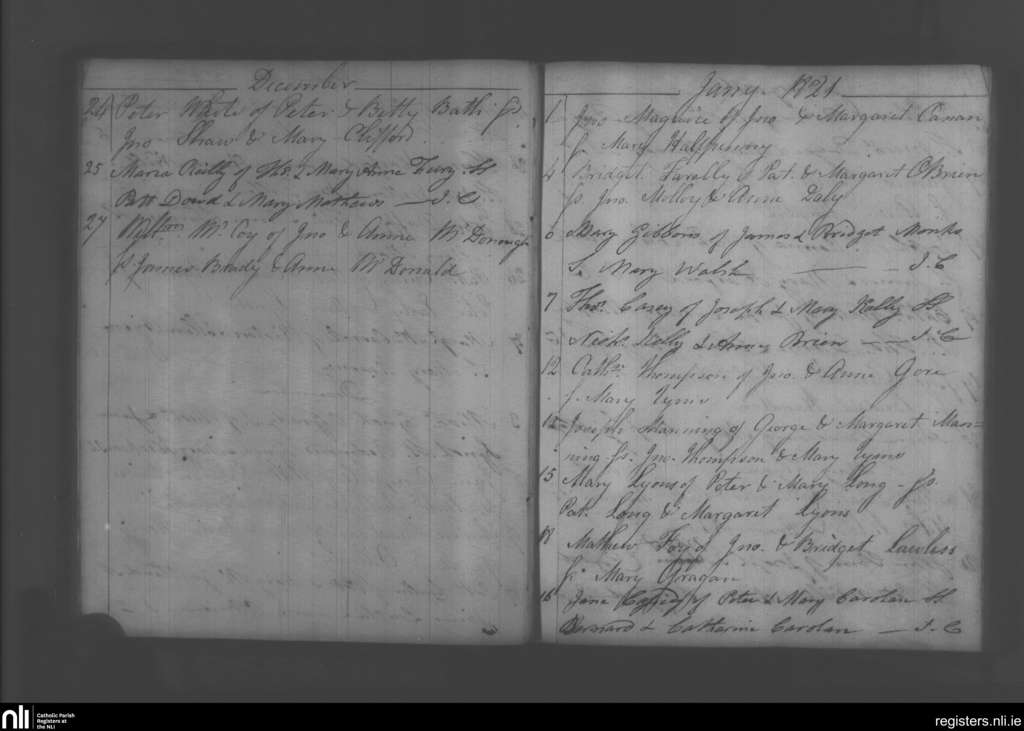 December
24 Peter White of Peter & Betty Bath Ss.
Jno Shaw & Mary Clifford
25 Maria Reilly of Ths. & Mary Anne Fury Ss
Patt Dowd & Mary Mathews — J. C
27 McCoy of Jno & Anne McDonough
S James Brady & Anne McDonald
Janry 1821
1 Jno Maguire of Jno & Margaret Canan
S. Mary Halfpenny
4 Bridget Farelly of Pat. & Margaret O'Brien
Ss. Jno. Molloy & Anne Daly
6 Mary Gibbons of James & Bridget Monks
S. Mary Walsh — J. C
7 Thos. Casey of Joseph & Mary Kelly Ss
Nichs. Kelly & Brien — J. C
12 Cathe. Thompson of Jno. & Anne Gore
S. Mary Lyons
Joseph Manning of George & Margaret Man-
ning Ss. Jno. Thompson & Mary Lyons
15 Mary Lyons of Peter & Mary Long - Ss.
Pat. Long & Margaret Lyons
Mathew of Jno. & Bridget Lawless
S. Mary
Jane of Peter & Mary Carolan Ss
Bernard & Catharine Carolan — J. C
nli Catholic Parish
Registers at
the NLI
registers.nli.ie